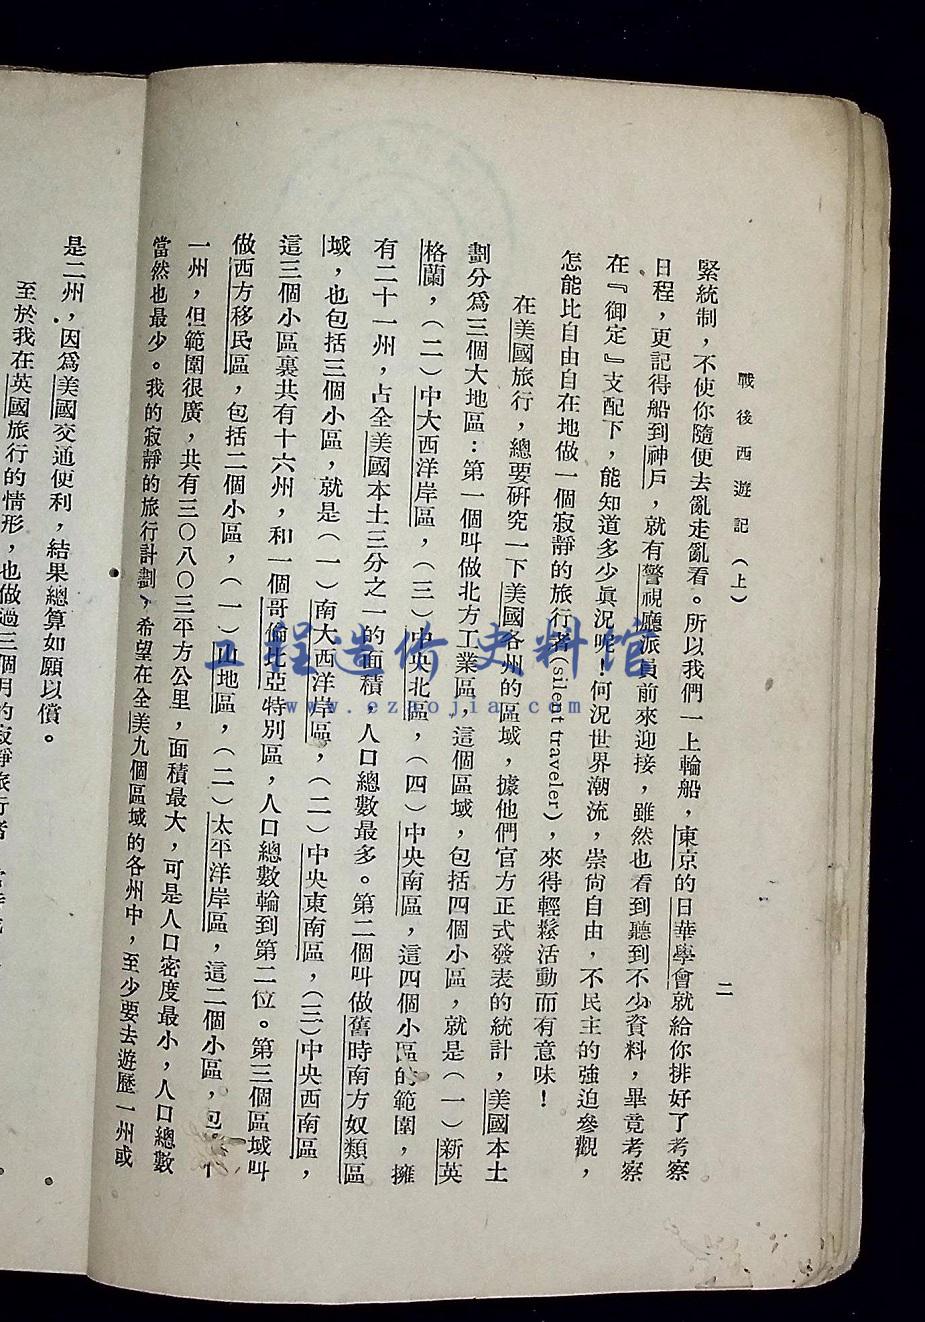 戰後西遊記(上)
二
緊統制，不使你隨便去亂走亂看。所以我們一上輪船，東京的日華學會就給你排好了考察
日程，更記得船到神戶，就有警視廳派員前來迎接，雖然也看到聽到不少資料，畢竟考察
在『御定』支配下，能知道多少眞況呢！何況世界潮流，崇尙自由，不民主的強迫參觀，
怎能比自由自在地做一個寂靜的旅行者(silent traveler)，來得輕鬆活動而有意味！
在美國旅行，總要硏究一下美國各州的區域，據他們官方正式發表的統計，美國本土
劃分爲三個大地區：第一個叫做北方工業區，這個區域，包括四個小區，就是(一)新英
格蘭，(二)中大西洋岸區，(三)中央北區，(四)中央南區，這四個小區的範圍，擁
有二十一州，占全美國本土三分之一的面積，人口總數最多。第二個叫做舊時南方奴類區
域，也包括三個小區，就是(一)南大西洋岸區，(二)中央東南區，(三)中央西南區，
這三個小區裏共有十六州，和一個哥倫比亞特別區，人口總數輪到第二位。第三個區域叫
做西方移民區，包括二個小區，(一)山地區，(二)太平洋岸區，這二個小區，包十
一州，但範圍很廣，共有三〇八〇三平方公里，面積最大，可是人口密度最小，人口總數
當然也最少。我的寂靜的旅行計劃，希望在全美九個區域的各州中，至少要去遊歷一州或
是二州，因爲美國交通便利，結果總算如願以償。
至於我在英國旅行的情形，也做過三個月的寂靜旅行者
工程造价史料馆
www.ezaojia.com